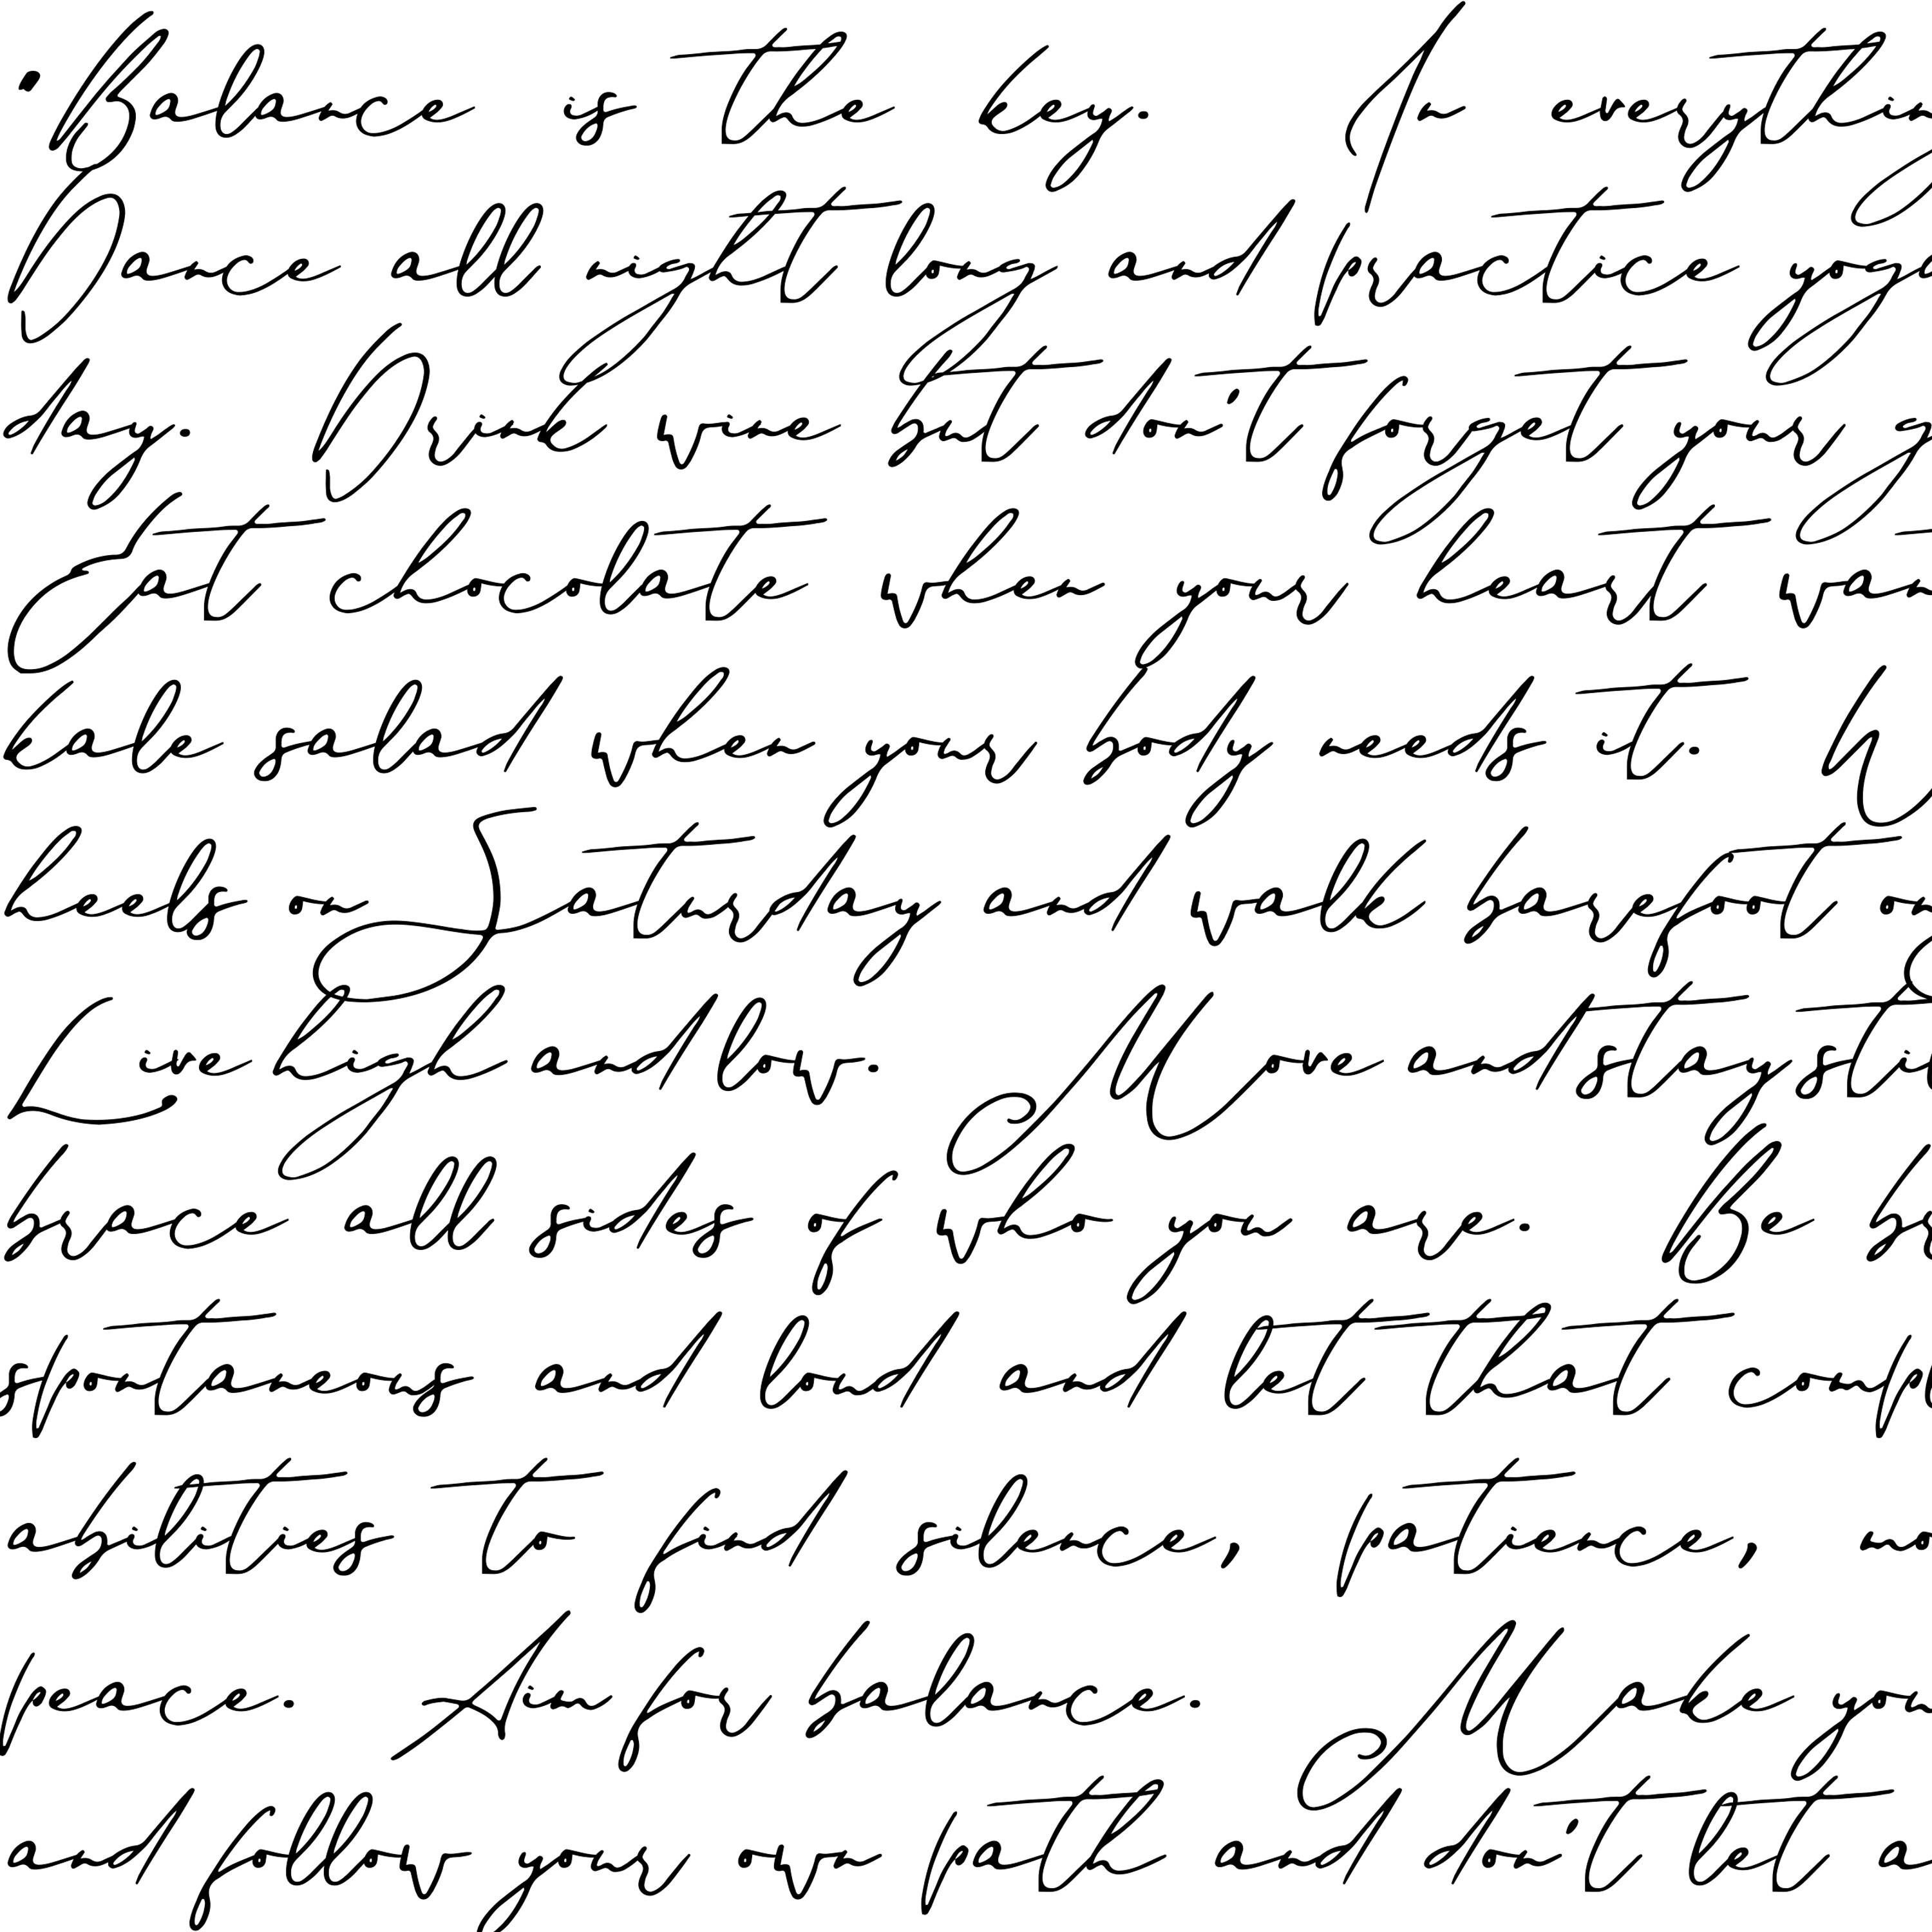 'Balance is the key. In everythin
Dance all night long and practice yog
day. Drink wine but don't forget your g
Eat chocolate when your heart wan
kale salad when your body needs it. W
heels on Saturday and walk barefoot on
Live high and low. Move and stay sti
brace all sides of who you are. Be b
spontaneous and loud and let that comp
abilities to find silence, patience, mo
peace. Aim for balance. Make you
and follow your own path and don't let a